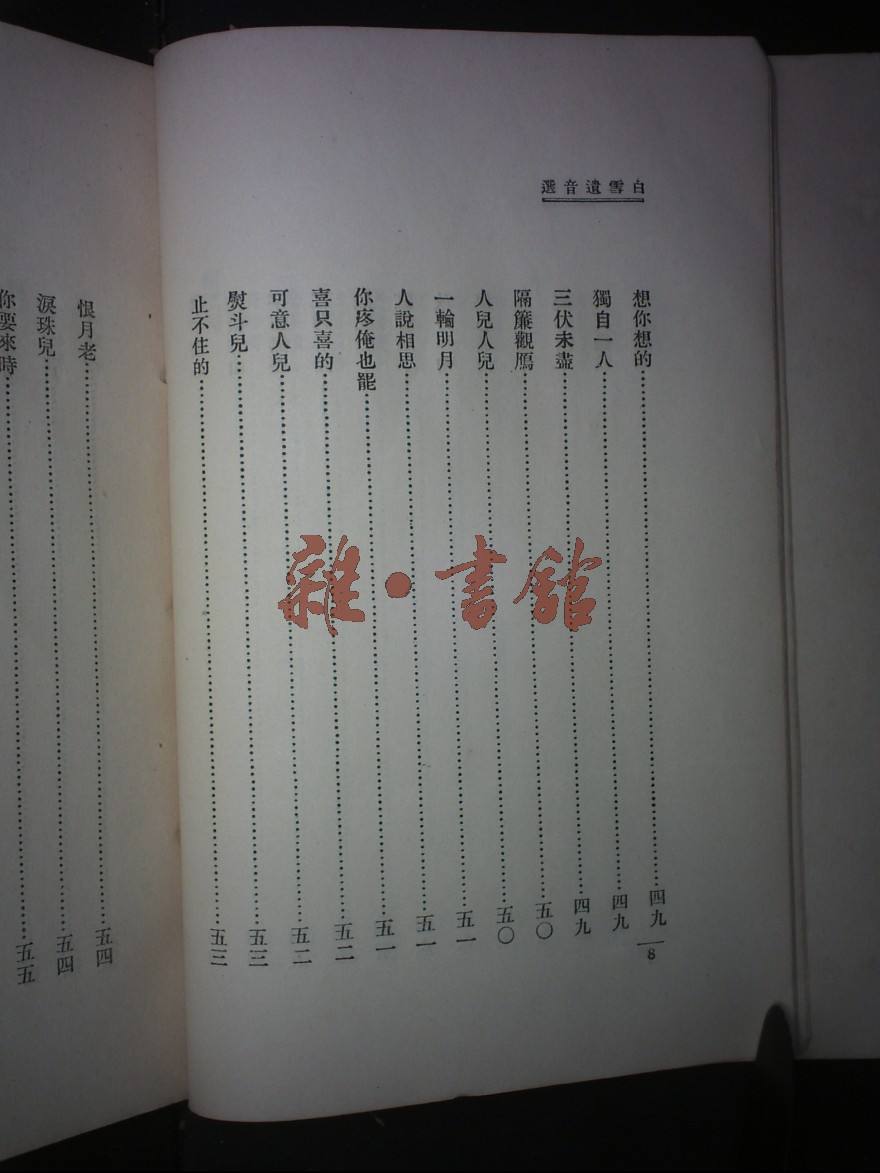 白雪遺音選
想你想的⋯⋯四九
獨自一人⋯⋯四九
三伏未盡⋯⋯四九
隔簾觀鴈⋯⋯五〇
人兒人兒⋯⋯五〇
一輪明月⋯⋯五一
人說相思⋯⋯五一
你疼俺也罷⋯⋯五一
喜只喜的⋯⋯五二
可意人兒⋯⋯五二
熨斗兒⋯⋯五三
止不住的⋯⋯五三
8
恨月老⋯⋯五四
淚珠兒⋯⋯五四
你要來時⋯⋯五五
雜·書館